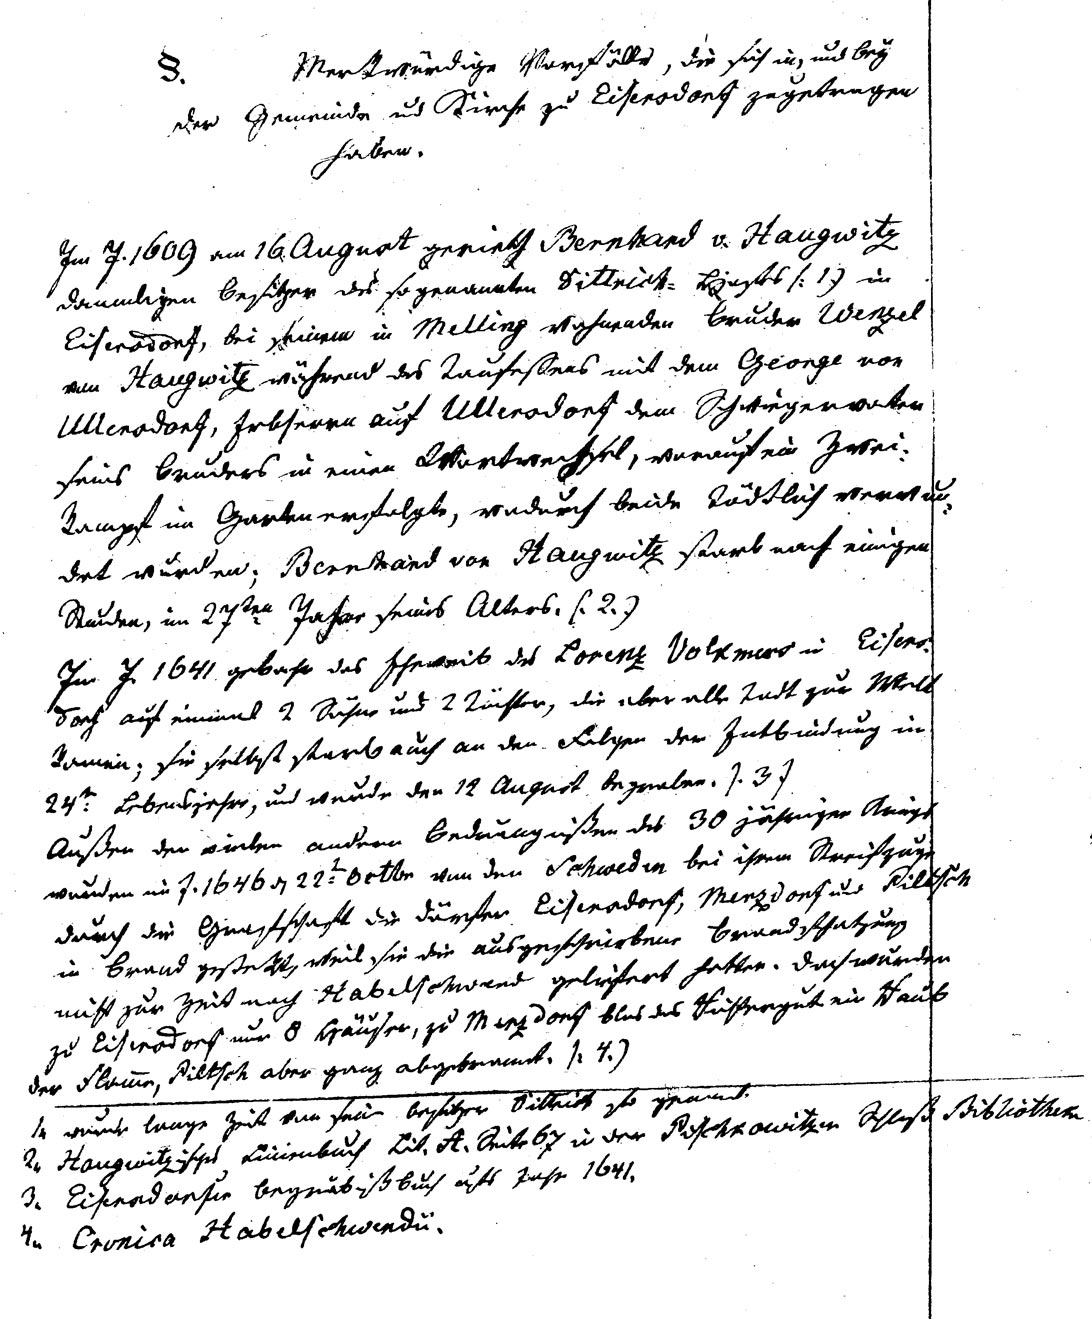 §. Merkwürdige Vorfälle, die sich in, und bey
der Gemeinde und Kirche zu Eisersdorf zugetragen
haben.
Im J. 1609 am 16 August gerieth Bernhard v. Haugwitz
damaliger Besitzer des sogenannten Dittrich= Hofes (: 1.) in
Eisersdorf, bei seinem in Melling wohnenden Bruder Wenzel
von Haugwitz während des Taufessens mit dem George von
Ullersdorf, Erbherrn auf Ullersdorf dem Schwiegervater
seines Bruders in einen Wortwechsel, worauf ein Zwei=
kampf im Garten erfolgte, wodurch beide tödtlich verwun=
det wurden; Bernhard von Haugwitz starb nach einigen
Stunden, im 27ten Jahre seines Alters. (: 2.)
Im J. 1641 gebahr das Eheweib des Lorenz Volkmers in Eisers=
dorf auf einmal 2 Söhne und 2 Töchter, die aber alle Todt zur Welt
kamen; sie selbst starb auch an den Folgen der Entbindung in
24t. Lebensjahre, und wurde den 12 August begraben. (: 3.)
Außer den vielen andern Bedrängnißen des 30 jährigen Kriegs
wurden im J. 1646 d 22t Octbr von den Schweden bei ihrem Streifzuge
durch die Grafschaft die Dörfer Eisersdorf, Merzdorf und Piltsch
in Brand gesteckt, weil sie die ausgeschriebene Brandschatzung
nicht zur Zeit nach Habelschwerd geliefert hatten. Doch wurden
zu Eisersdorf nur 8 Häuser, zu Merzdorf blos das Küstergut ein Raub
der Flamme, Piltsch aber ganz abgebrannt. (: 4.)
1. wurde lange Zeit von sein Besitzer Dittrich so genannt.
2. Haugwitzisches Linienbuch Lit. A. Seite 67 in der Pischkowitzer Schloß Bibliothek
3. Eisersdorfer Begräbnißbuch aufs Jahr 1641.
4. Cronica Habelschwerdii.